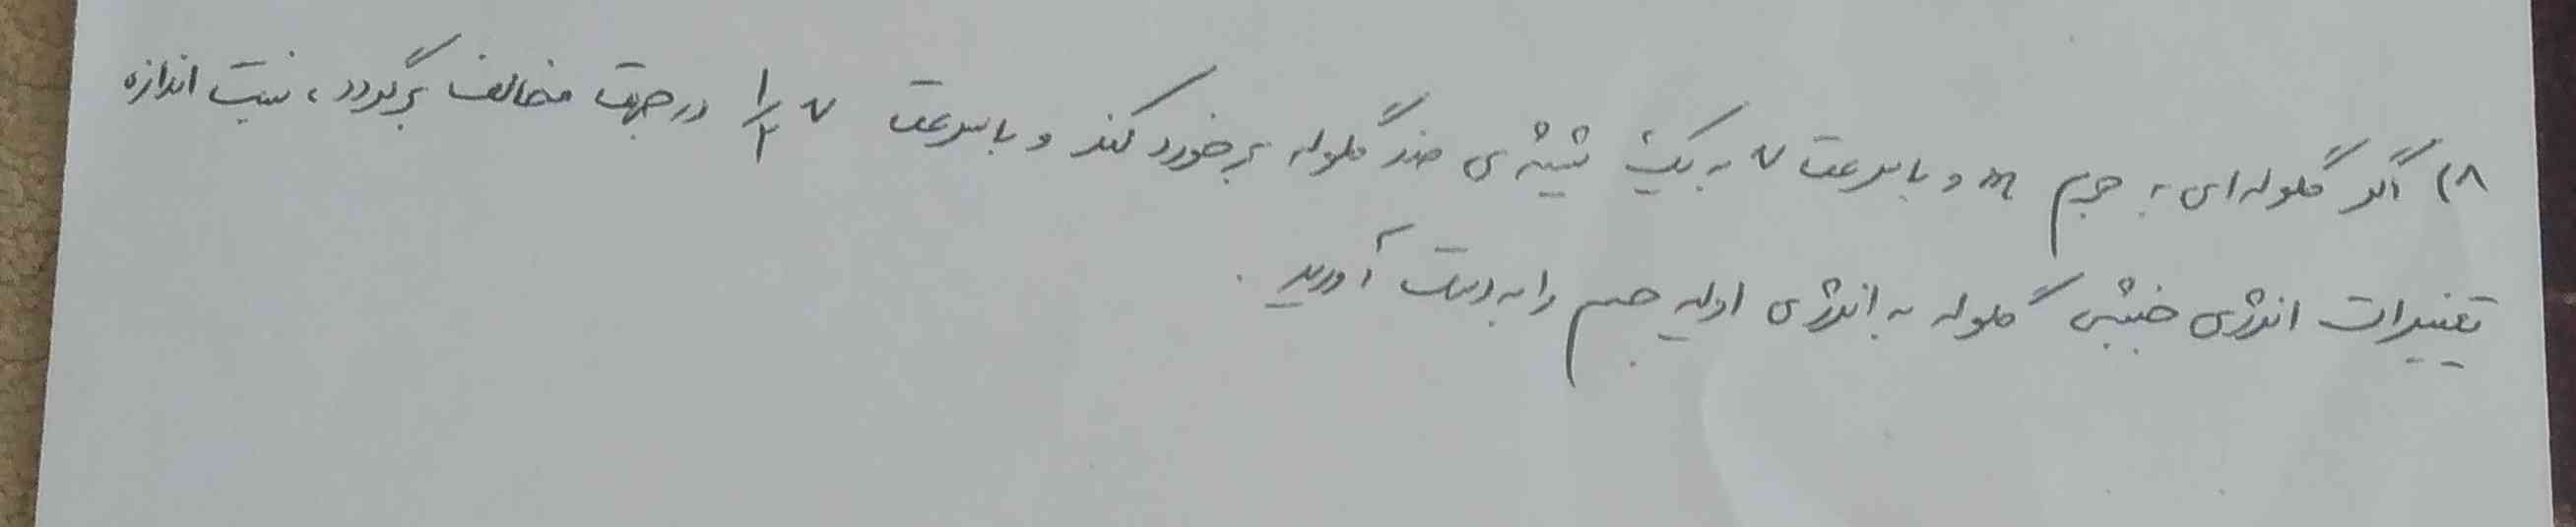 ۸) اگر گلوله‌ای به جرم m و با سرعت v به یک شیشه‌ی ضد گلوله برخورد کند و با سرعت ۱/۲ v در جهت مخالف برگردد، نسبت اندازه
تغییرات انرژی جنبشی گلوله به انرژی اولیه جسم را به دست آورید.